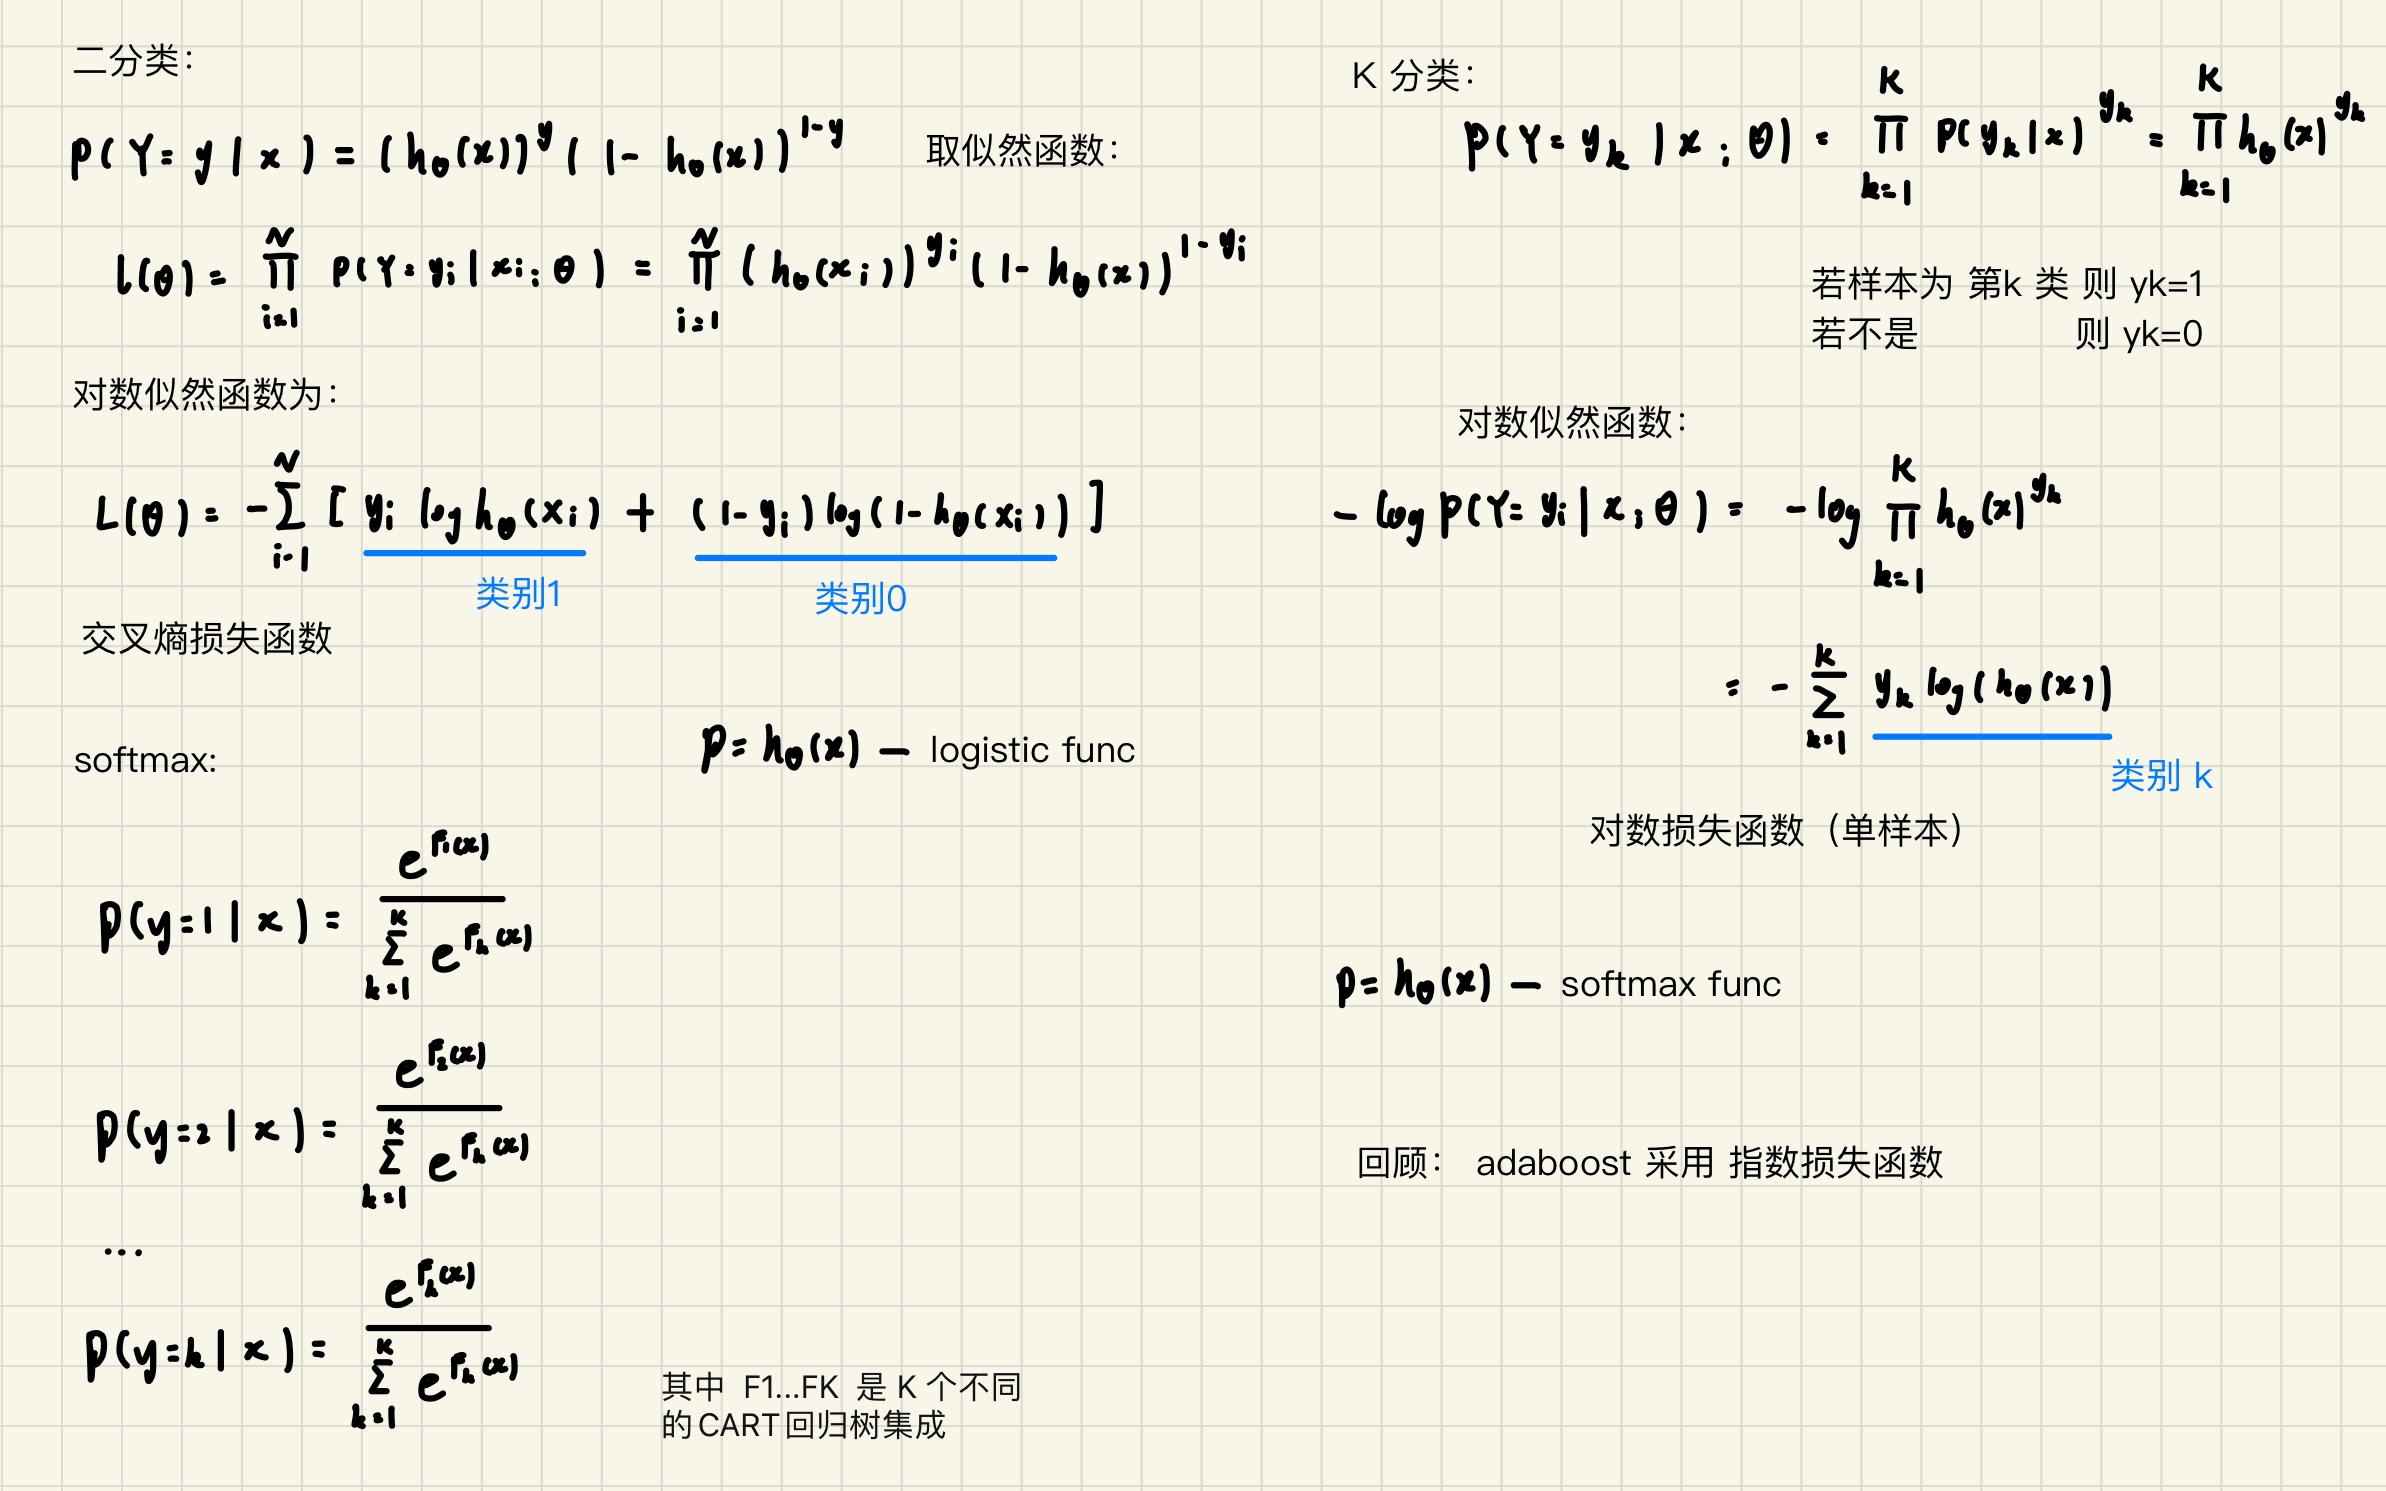 二分类：
P(Y=y|x) = (hθ(x))^y (1-hθ(x))^{1-y} 取似然函数：
l(θ) = ∏_{i=1}^{N} P(Y=yi|xi;θ) = ∏_{i=1}^{N} (hθ(xi))^{yi} (1-hθ(x))^{1-yi}
对数似然函数为：
L(θ) = -∑_{i=1}^{N} [yi log hθ(xi) + (1-yi) log(1-hθ(xi))]
类别1 类别0
交叉熵损失函数
softmax:
P = hθ(x) — logistic func
P(y=1|x) = e^{F1(x)} / ∑_{k=1}^{K} e^{Fk(x)}
P(y=2|x) = e^{F2(x)} / ∑_{k=1}^{K} e^{Fk(x)}
...
P(y=k|x) = e^{Fk(x)} / ∑_{k=1}^{K} e^{Fk(x)}
其中 F1...FK 是 K 个不同
的 CART 回归树集成
K 分类：
P(Y=yk|x;θ) = ∏_{k=1}^{K} P(yk|x)^{yk} = ∏_{k=1}^{K} hθ(x)^{yk}
若样本为 第k 类 则 yk=1
若不是 则 yk=0
对数似然函数：
-log P(Y=yi|x;θ) = -log ∏_{k=1}^{K} hθ(x)^{yk}
= -∑_{k=1}^{K} yk log(hθ(x))
类别 k
对数损失函数（单样本）
P = hθ(x) — softmax func
回顾： adaboost 采用 指数损失函数